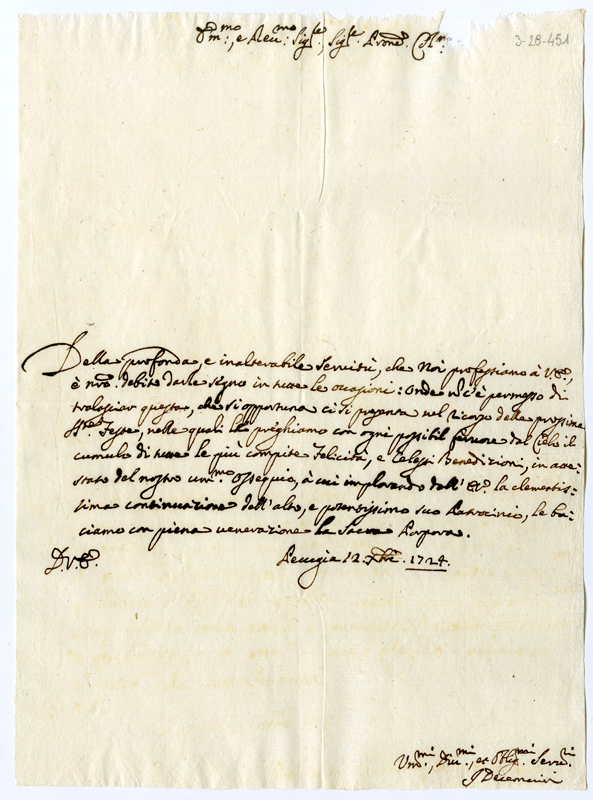 Em.mo, e Rev.mo Sig.re, Sig.re Prone Col.mo
3-28-451
Della profonda, e inalterabile Servitù, che Noi professiamo à V.E.,
è nro. debito darle segno in tutte le occasioni: Onde nō c'è permesso di
tralasciar questa, che sì opportuna ci si presenta nel ricorso delle prossime
SS.te Feste, nelle quali le preghiamo con ogni possibil fervore dal Cielo il
cumulo di tutte le più compite Felicità, e Celesti Benedizioni, in atte=
stato del nostro um.mo ossequio, à cui implorando dall'E.V. la clementis=
sima continuazione dell'alto, e potentissimo suo Patrocinio, le ba=
ciamo con piena venerazione la Sacra Porpora.
D.V.E.
Perugia 12. Xbre. 1724.
Um.mi, Div.mi, et Obbl.mi Serv.ri
I Decemviri